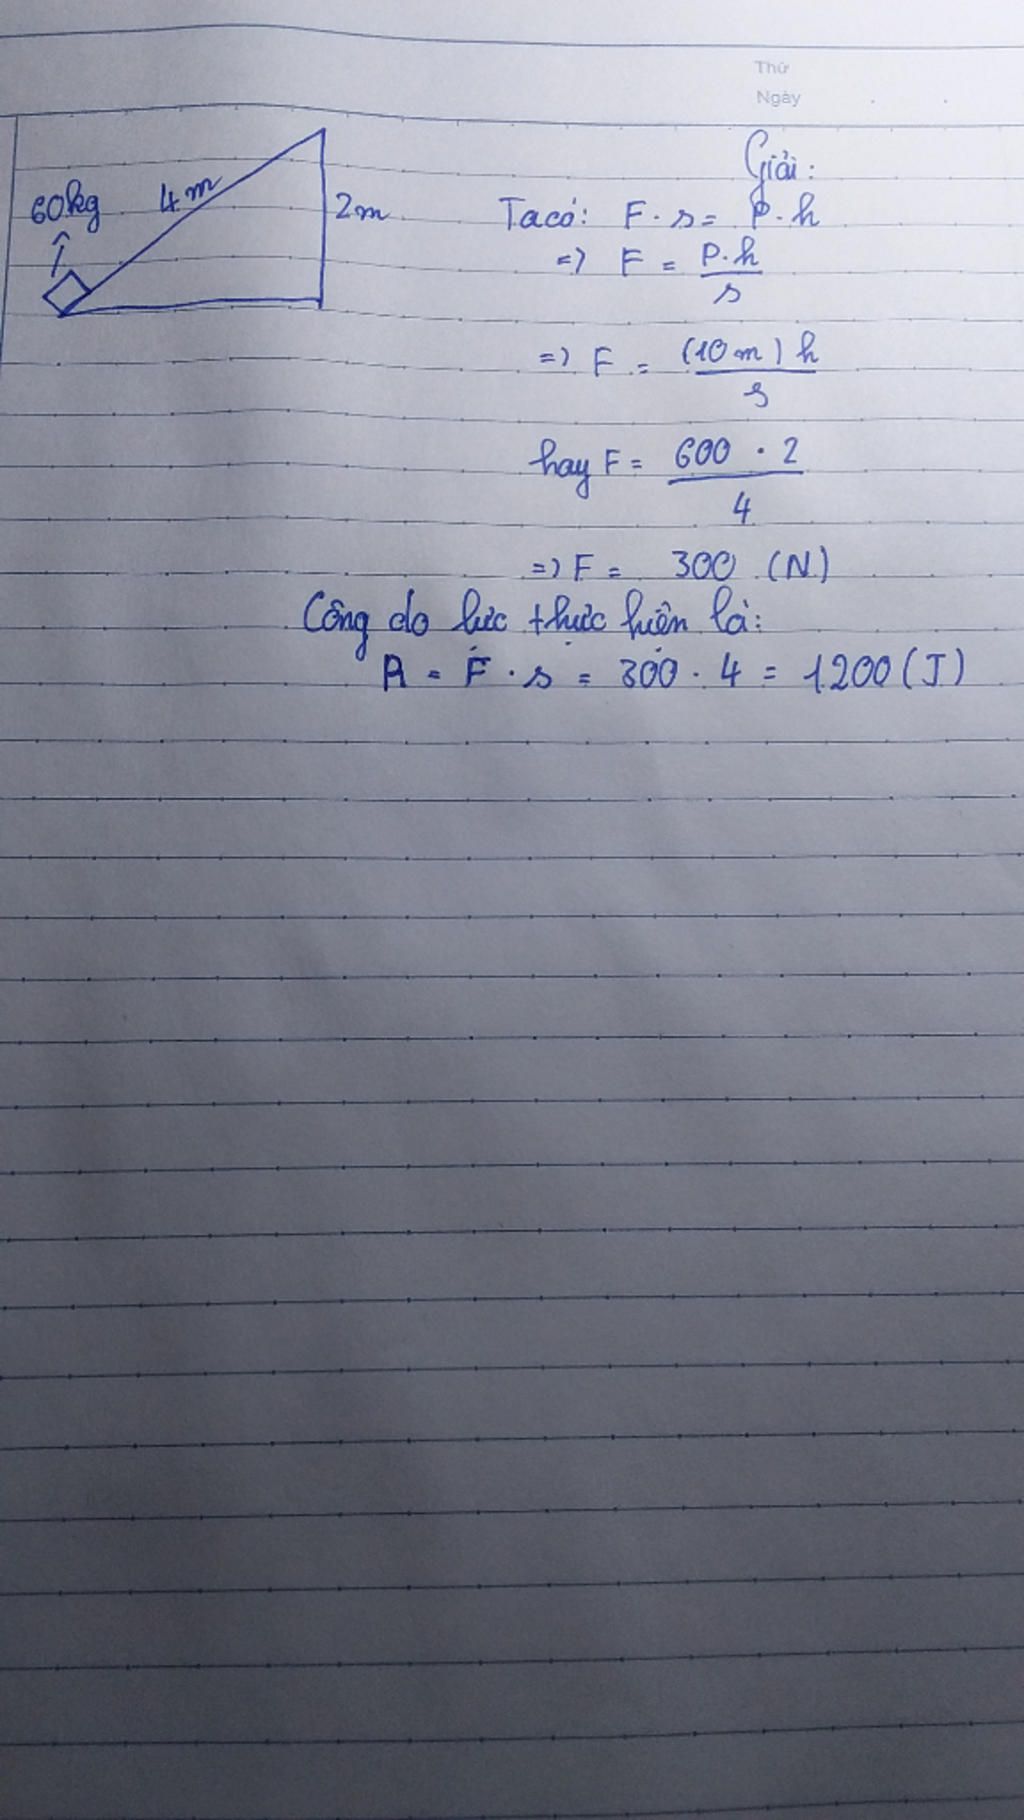 Thứ
Ngày
Giải:
60kg 4m 2m
Ta có: F . s = P . h
=> F = P.h / s
=> F = (10m) h / s
hay F = 600 . 2 / 4
=> F = 300 (N)
Công do lực thực hiện là:
A = F . s = 300 . 4 = 1200 (J)